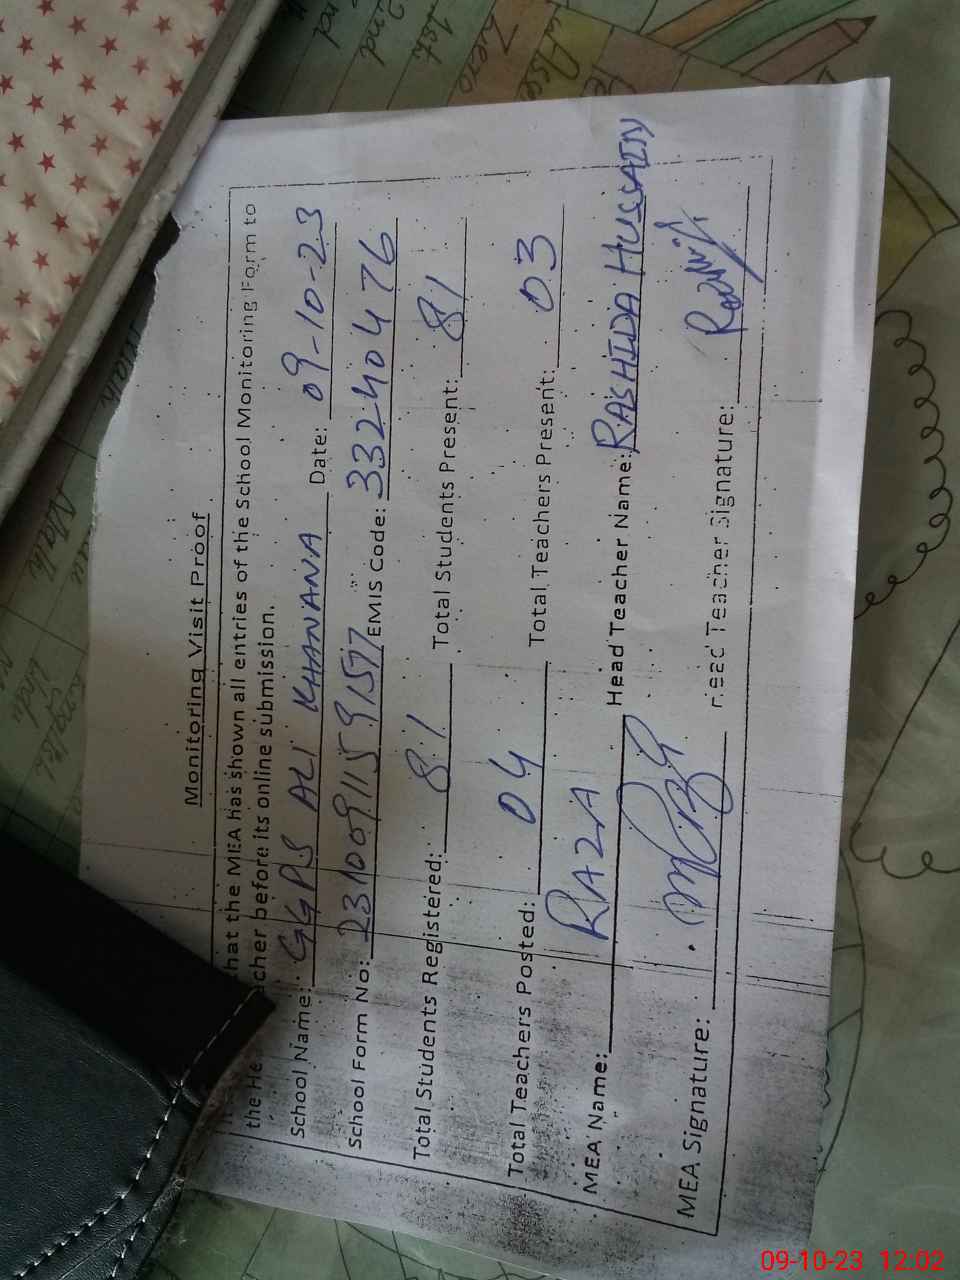 Monitoring Visit Proof
that the MEA has shown all entries of the School Monitoring Form to
the He cher before its online submission.
School Name: GGPS ALI KHANANA Date: 09-10-23
School Form No: 23100911591577 EMIS Code: 33240476
Total Students Registered: 81 Total Students Present: 81
Total Teachers Posted: 04 Total Teachers Present: 03
MEA Name: RAZA Head Teacher Name: RASHIDA HUSSAIN
MEA Signature: Head Teacher Signature:
09-10-23 12:02